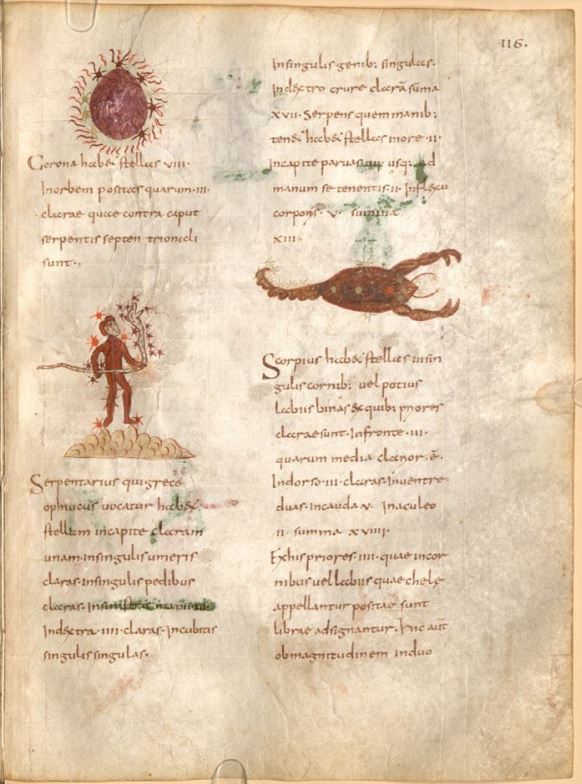 116.
Corona habet stellas viii·
Inorbem positas quarum·iii·
clarae quae contra caput
serpentis septen trionali
sunt·,
Serpentarius qui grece
ophiucus vocatur habet
stellam incapite claram
unam·insingulis umeris
claras·insingulis pedibus
claras·
Indextra·iiii·claras·Incubitis
singulis singulas·
Insingulis genib; singulas·
Indextro crure claram summa
xvii· Serpens quem manib;
tenet habet stellas more·ii·
Incapite parvas usq; ad
manum se tenentis·ii· Inflexu
corporis·v· summa
xiii·
Scorpius habet stellas insin
gulis cornib; vel potius
labiis binas ex quib; priores
clarae sunt·Infronte·iii·
quarum media clarior·ē·
Indorso·iii·claras·Inventre·
duas·Incauda v· Inaculeo
ii· summa xviiii·
Ex his priores·iiii·quae incor
nibus vel labiis quae chele
appellantur positae sunt
librae adsignantur· Hic aut
obmagnitudinem induo